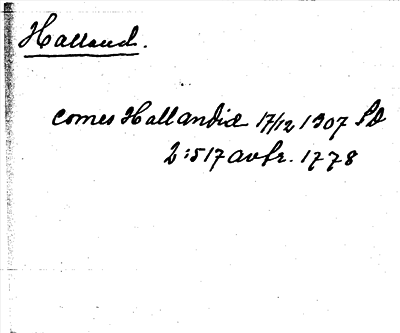 Halland.
comes Hallandiæ 17/12 1307 SD
2:517 avfr. 1778